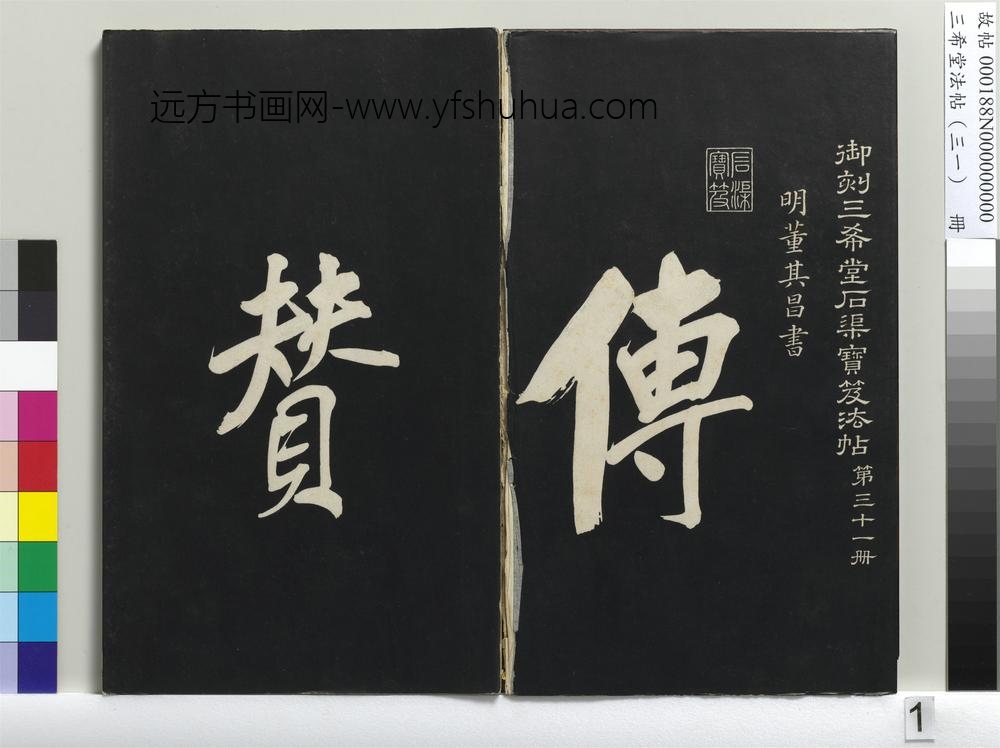 故帖 000188N000000000
三希堂法帖（三一） 冊
御刻三希堂石渠寶笈法帖 第三十一冊
明董其昌書
石渠寶笈
傳
賛
远方书画网-www.yfshuhua.com
1